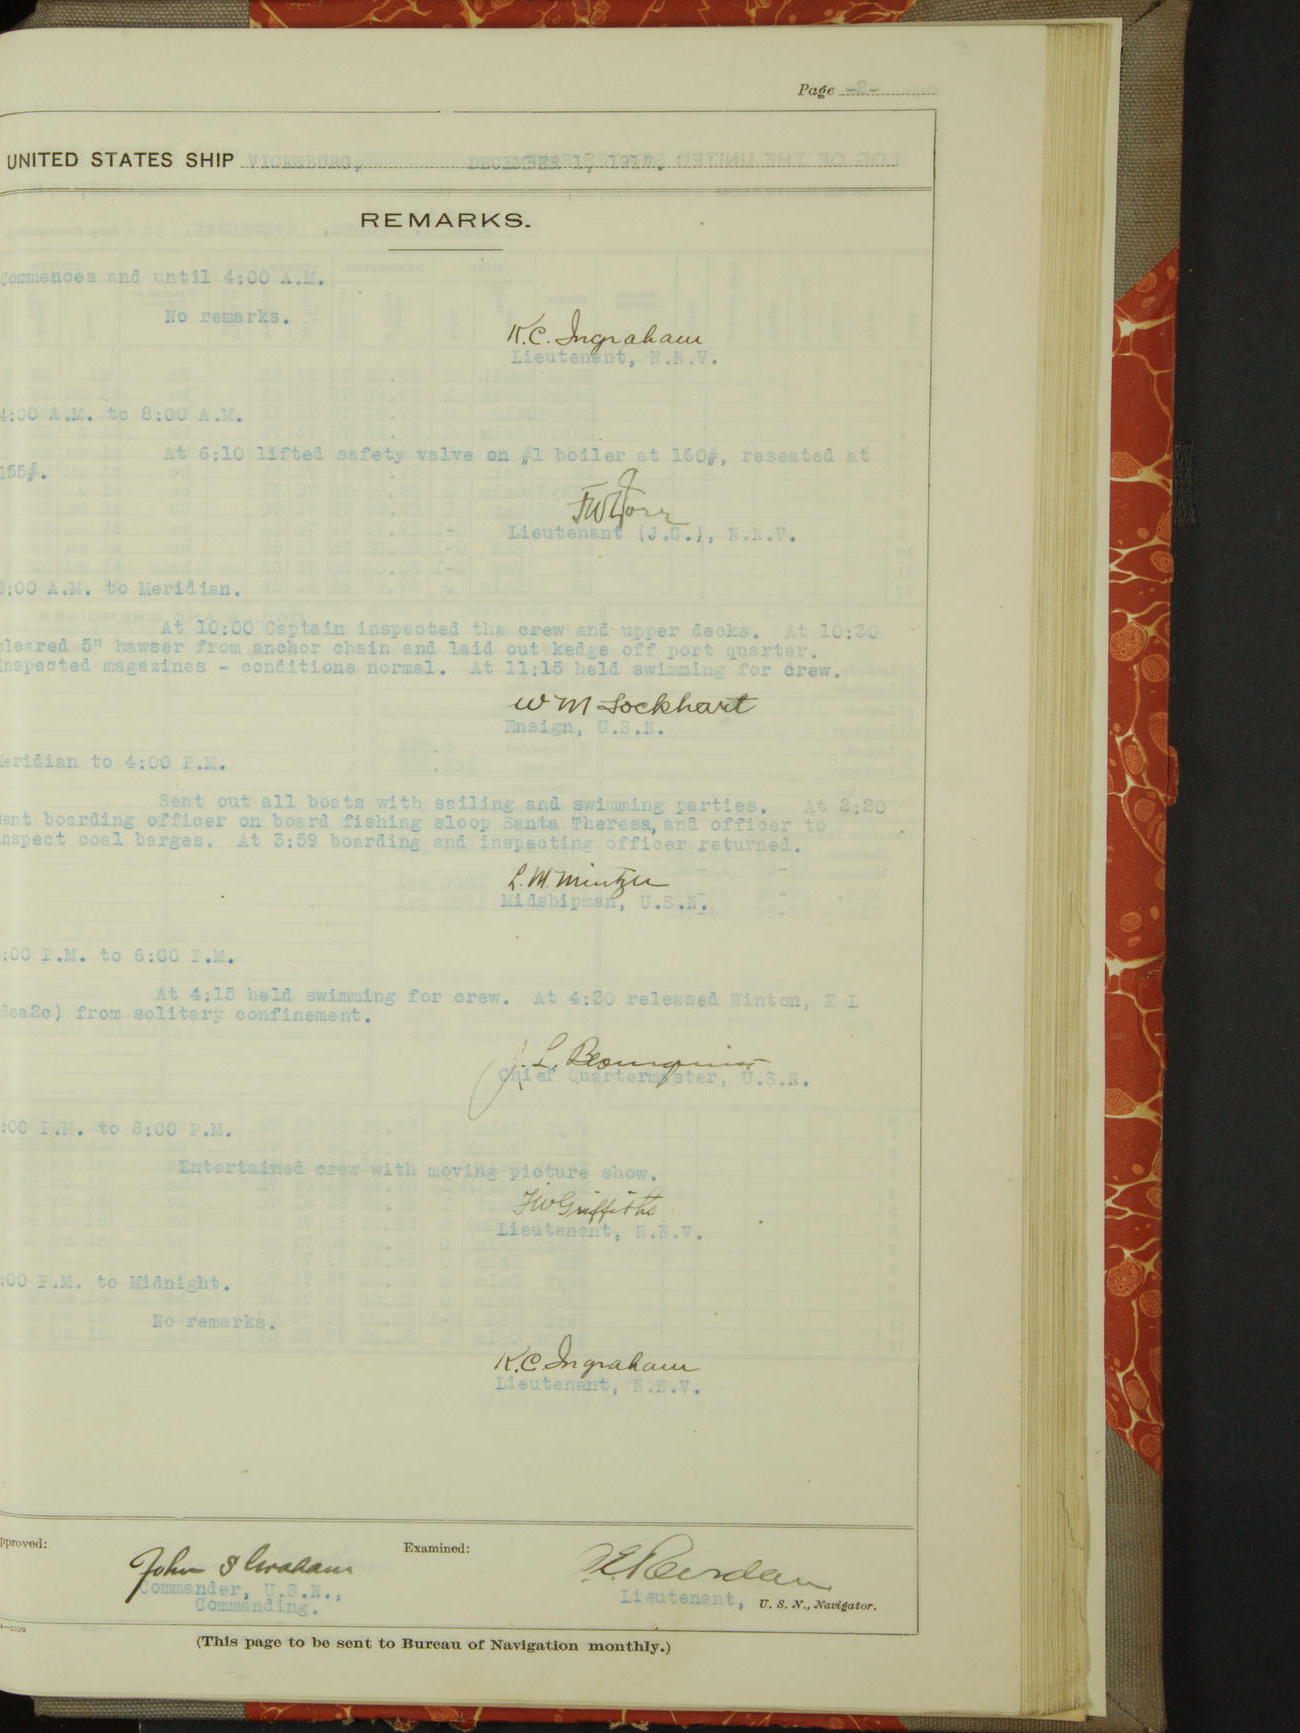 Page -2-
UNITED STATES SHIP VICKSBURG, DECEMBER 1, 1917.
REMARKS.
Commences and until 4:00 A.M.
No remarks.
K.C. Ingraham
Lieutenant, N.N.V.
4:00 A.M. to 8:00 A.M.
At 6:10 lifted safety valve on #1 boiler at 160#, reseated at
155#.
Lieutenant (J.G.), N.N.V.
8:00 A.M. to Meridian.
At 10:00 Captain inspected the crew and upper decks. At 10:30
cleared 5" hawser from anchor chain and laid out kedge off port quarter.
Inspected magazines - conditions normal. At 11:15 held swimming for crew.
W M Lockhart
Ensign, U.S.N.
Meridian to 4:00 P.M.
Sent out all boats with sailing and swimming parties. At 2:20
sent boarding officer on board fishing sloop Santa Theresa, and officer to
inspect coal barges. At 3:59 boarding and inspecting officer returned.
L. M. Mintzer
Midshipman, U.S.N.
:00 P.M. to 6:00 P.M.
At 4:15 held swimming for crew. At 4:30 released Winton, E L
(Sea2c) from solitary confinement.
J. L.
Chief Quartermaster, U.S.N.
:00 P.M. to 8:00 P.M.
Entertained crew with moving picture show.
F W Griffiths
Lieutenant, N.N.V.
:00 P.M. to Midnight.
No remarks.
K.C. Ingraham
Lieutenant, N.N.V.
pproved:
Examined:
John S Graham
Commander, U.S.N.,
Commanding.
Lieutenant, U. S. N., Navigator.
(This page to be sent to Bureau of Navigation monthly.)